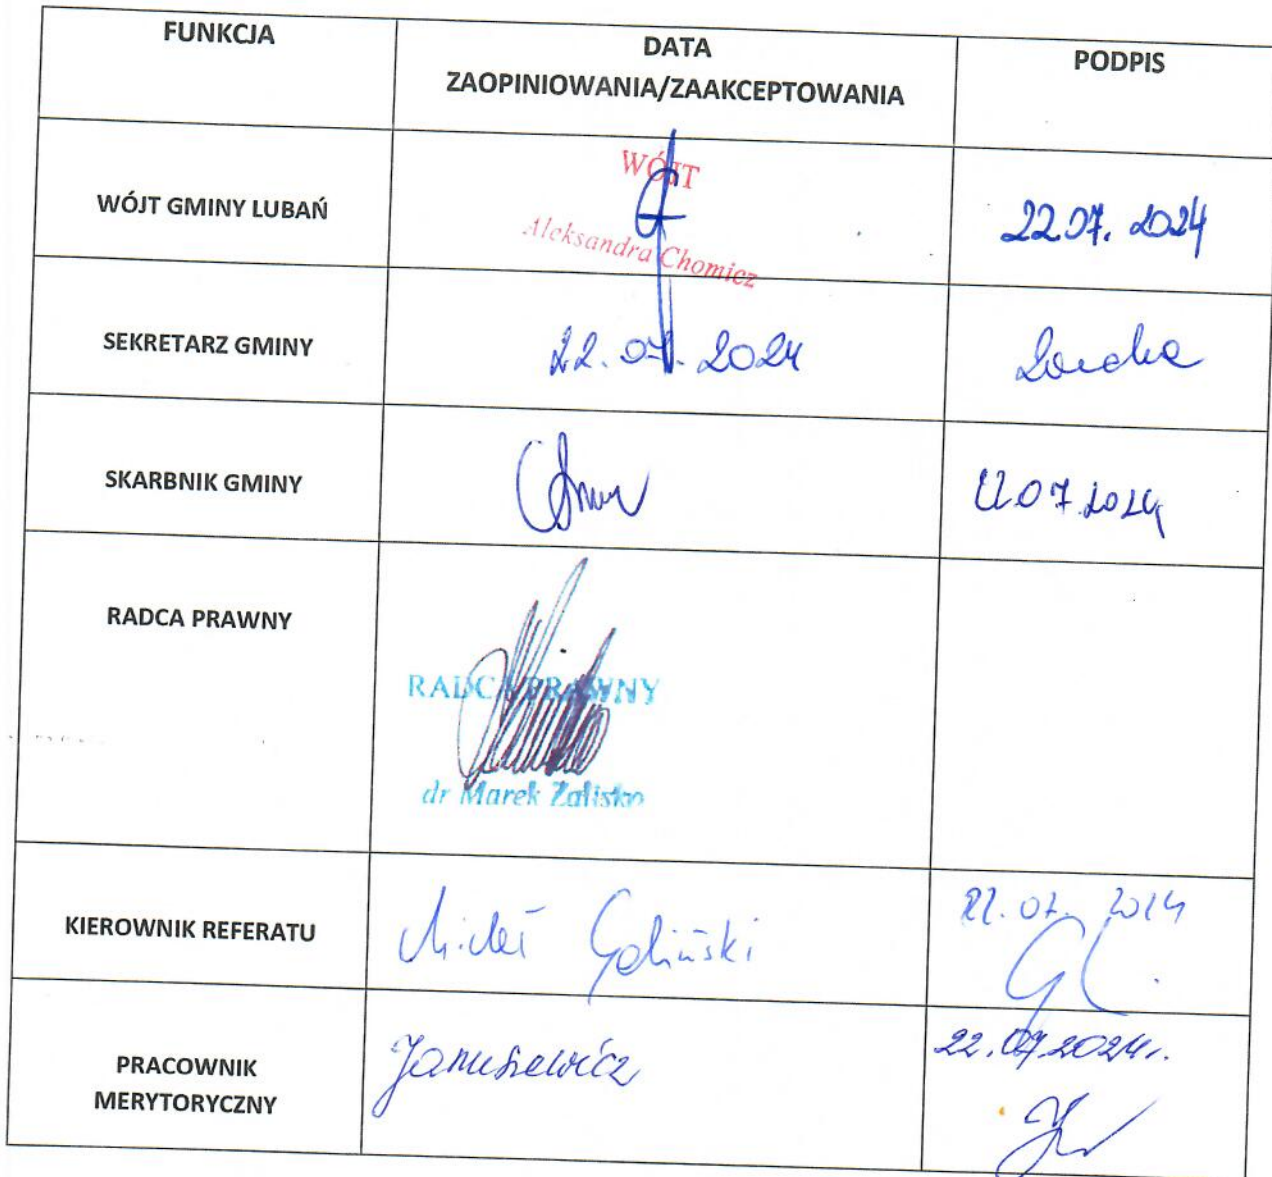 FUNKCJA
DATA
ZAOPINIOWANIA/ZAAKCEPTOWANIA
PODPIS
WÓJT GMINY LUBAŃ
WÓJT
Aleksandra Chomicz
22.07.2024
SEKRETARZ GMINY
22.07.2024
SKARBNIK GMINY
22.07.2024
RADCA PRAWNY
RADCA PRAWNY
dr Marek Zalisko
KIEROWNIK REFERATU
Michał Goliński
22.07.2024
PRACOWNIK
MERYTORYCZNY
Janusiewicz
22.07.2024r.